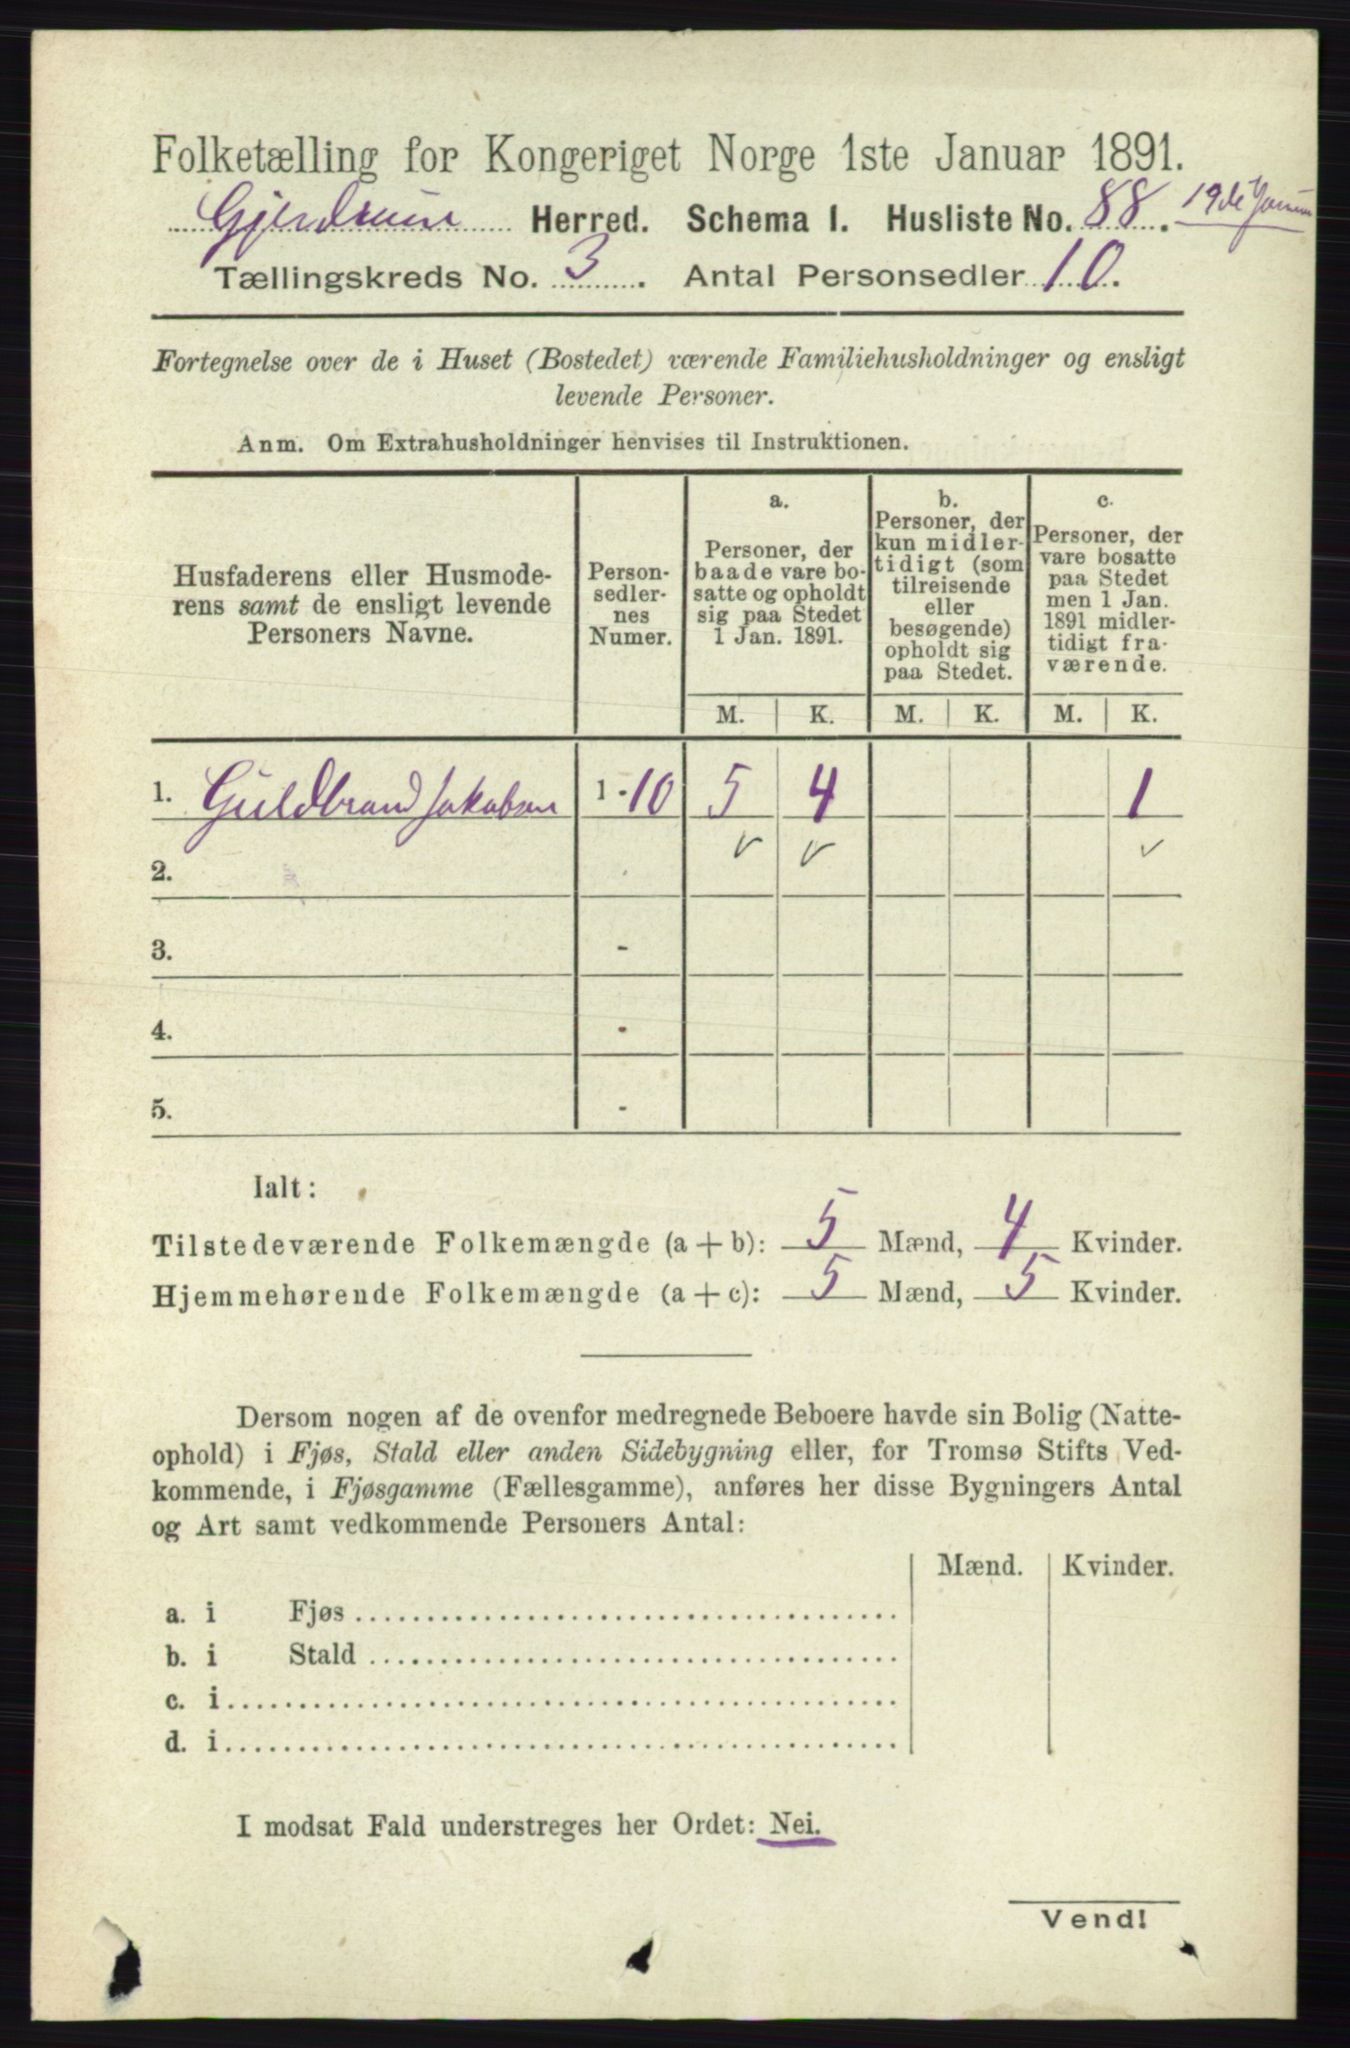 Folketælling for Kongeriget Norge 1ste Januar 1891.
Gjerdrum Herred. Schema I. Husliste No. 88. 19de Januar
Tællingskreds No. 3. Antal Personsedler 10.
Fortegnelse over de i Huset (Bostedet) værende Familiehusholdninger og ensligt
levende Personer.
Anm. Om Extrahusholdninger henvises til Instruktionen.
Husfaderens eller Husmode-
rens samt de ensligt levende
Personers Navne.
Person-
sedler-
nes
Numer.
a.
Personer, der
baade vare bo-
satte og opholdt
sig paa Stedet
1 Jan. 1891.
b.
Personer, der
kun midler-
tidigt (som
tilreisende
eller
besøgende)
opholdt sig
paa Stedet.
c.
Personer, der
vare bosatte
paa Stedet
men 1 Jan.
1891 midler-
tidigt fra-
værende.
M. K. M. K. M. K.
1. Guldbrand Jakobsen 1 - 10 5 4 1
2.
3. -
4. -
5. -
Ialt:
Tilstedeværende Folkemængde (a + b): 5 Mænd, 4 Kvinder.
Hjemmehørende Folkemængde (a + c): 5 Mænd, 5 Kvinder.
Dersom nogen af de ovenfor medregnede Beboere havde sin Bolig (Natte-
ophold) i Fjøs, Stald eller anden Sidebygning eller, for Tromsø Stifts Ved-
kommende, i Fjøsgamme (Fællesgamme), anføres her disse Bygningers Antal
og Art samt vedkommende Personers Antal:
Mænd. Kvinder.
a. i Fjøs
b. i Stald
c. i
d. i
I modsat Fald understreges her Ordet: Nei.
Vend!